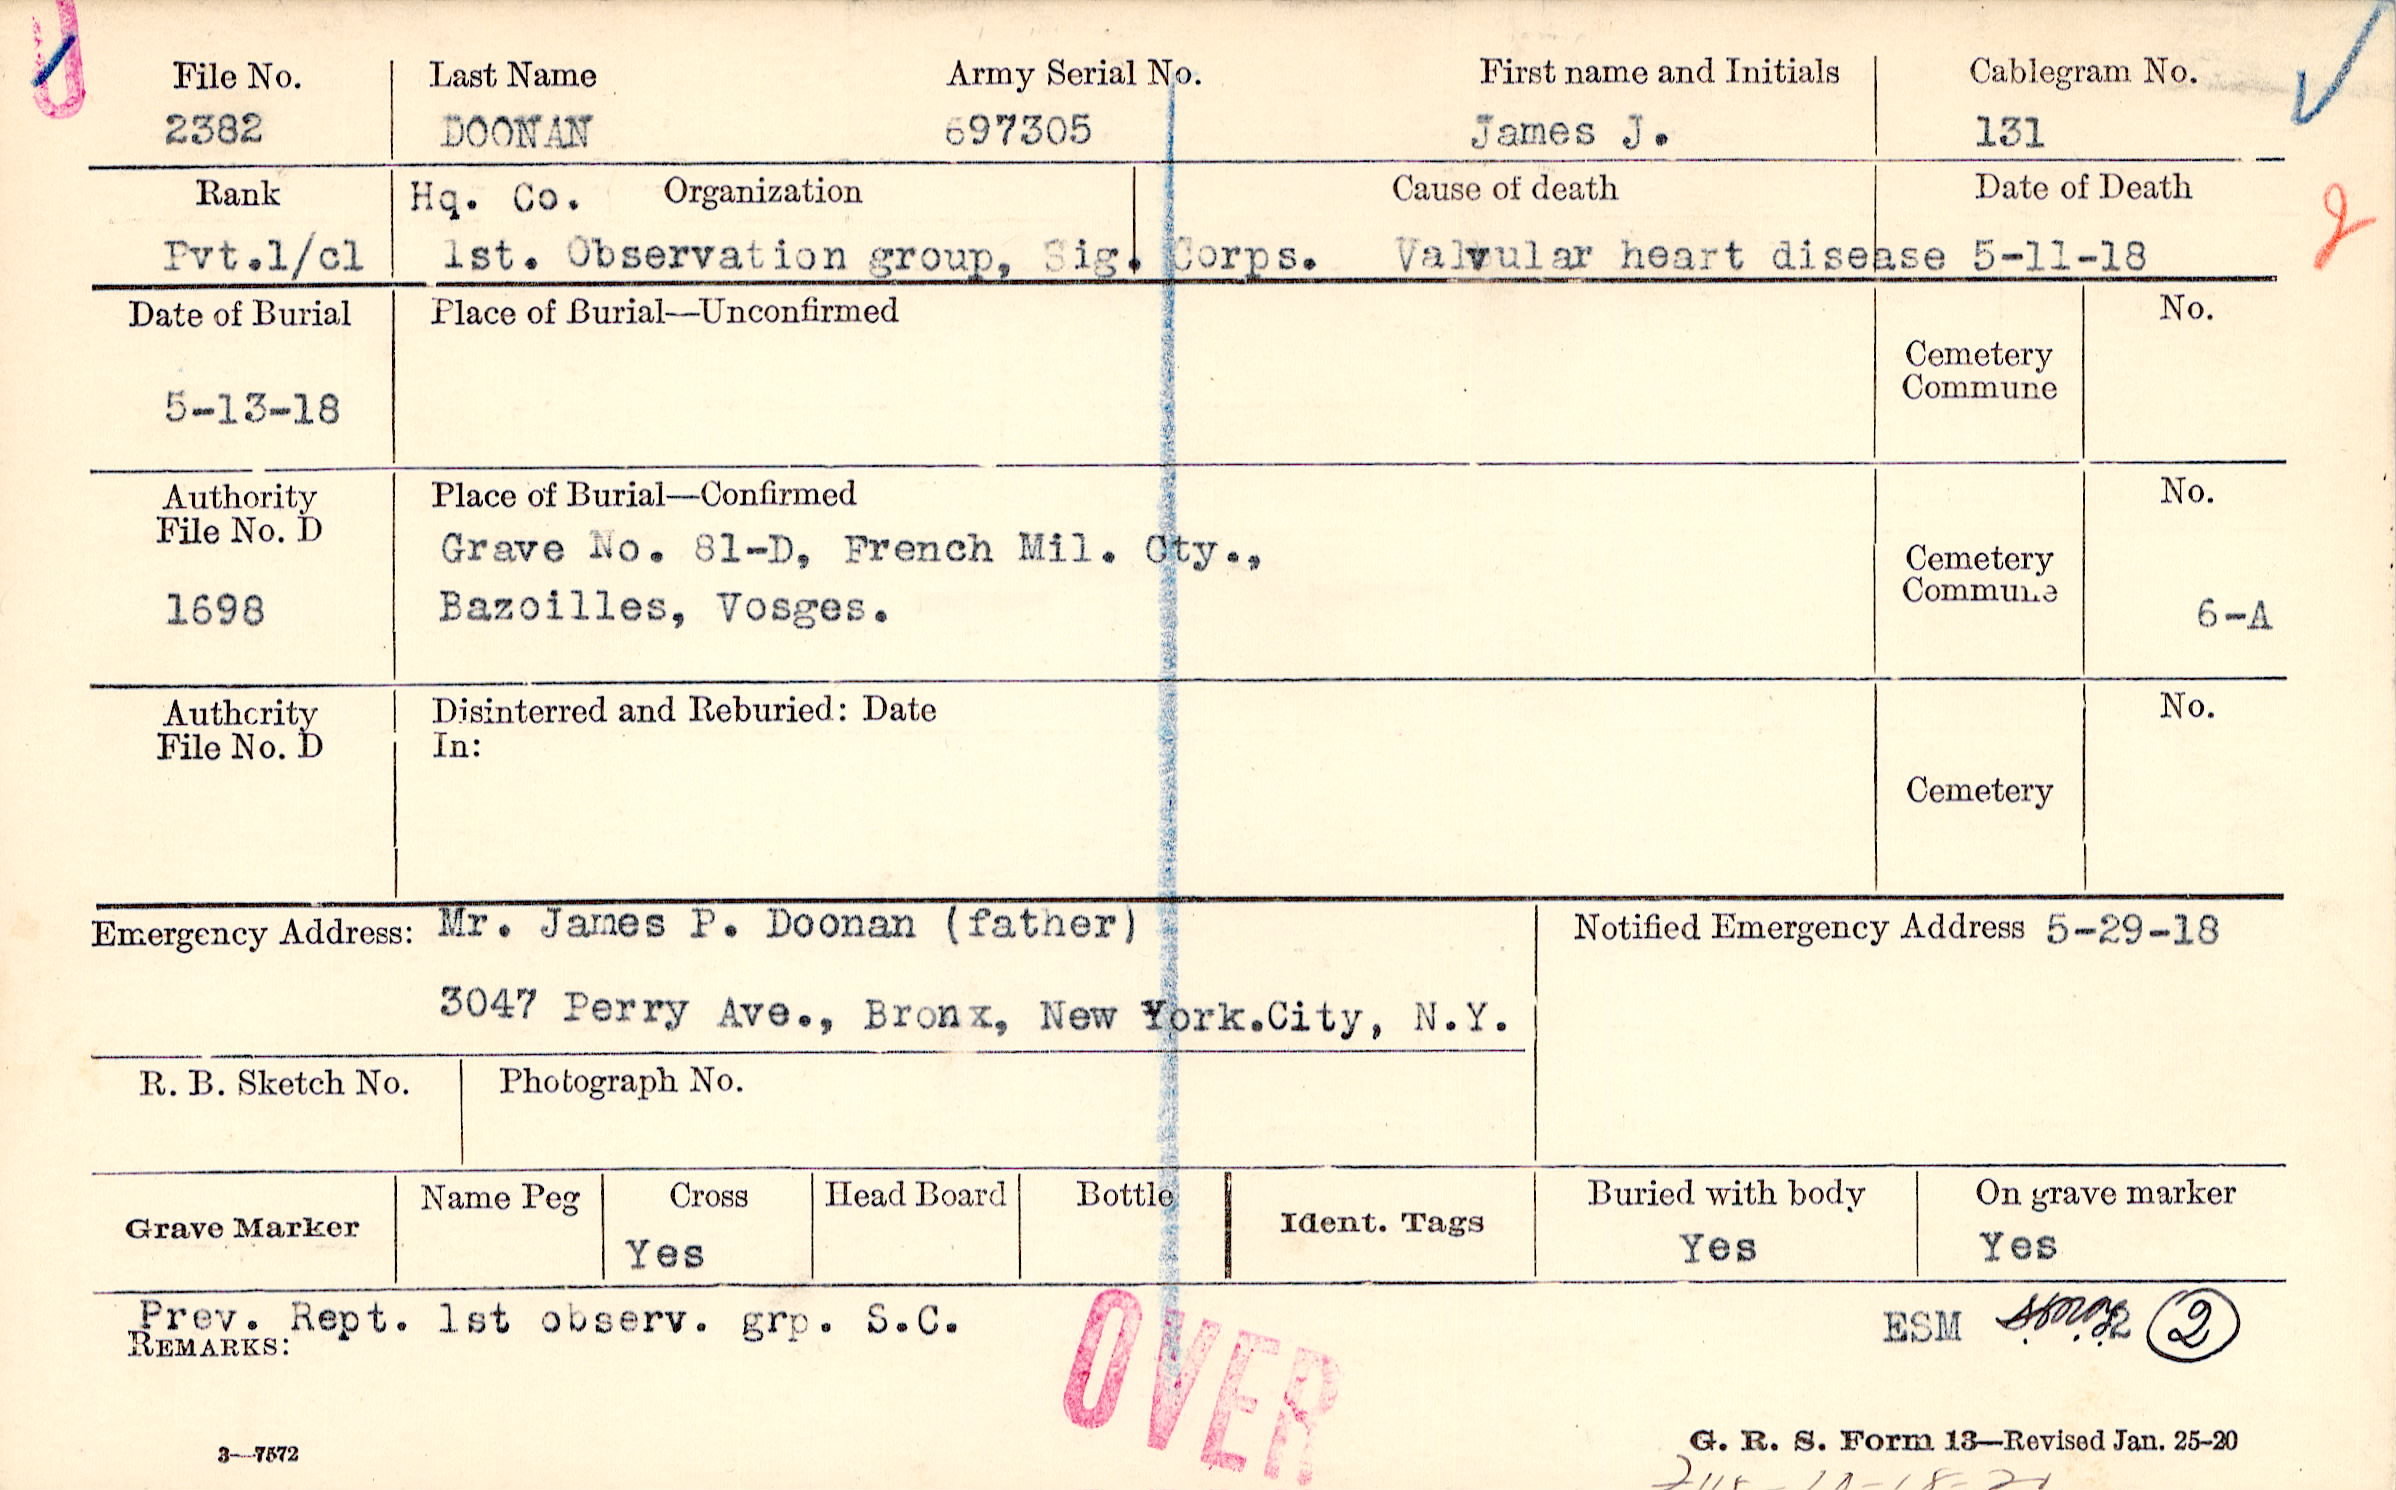 File No. Last Name Army Serial No. First name and Initials Cablegram No.
2382 DOONAN 697305 James J. 131
Rank Hq. Co. Organization Cause of death Date of Death
Pvt.1/cl 1st. Observation group, Sig. Corps. Valvular heart disease 5-11-18
Date of Burial Place of Burial—Unconfirmed No.
Cemetery
Commune
5-13-18
Authority Place of Burial—Confirmed No.
File No. D
Grave No. 81-D, French Mil. Cty., Cemetery
Commune
1698 Bazoilles, Vosges. 6-A
Authority Disinterred and Reburied: Date No.
File No. D In:
Cemetery
Emergency Address: Mr. James P. Doonan (father) Notified Emergency Address 5-29-18
3047 Perry Ave., Bronx, New York.City, N.Y.
R. B. Sketch No. Photograph No.
Grave Marker Name Peg Cross Head Board Bottle Ident. Tags Buried with body On grave marker
Yes Yes Yes
Prev. Rept. 1st observ. grp. S.C. ESM 2
REMARKS:
OVER
3—7572 G. R. S. Form 13—Revised Jan. 25-20